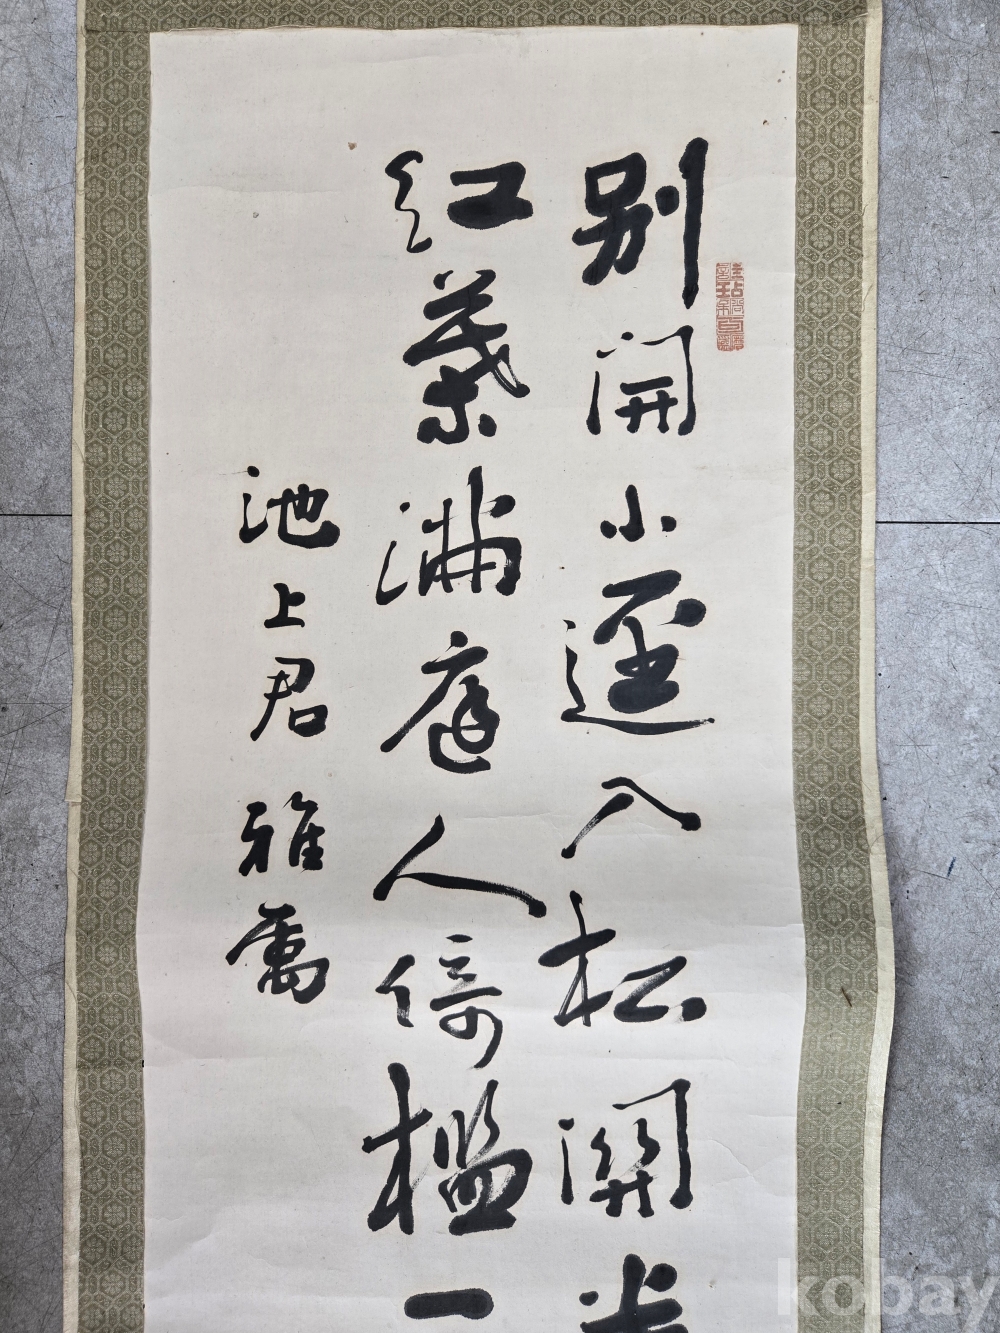 別開小逕入松關
紅葉滿庭人倚檻一
池上君雅屬
kobay